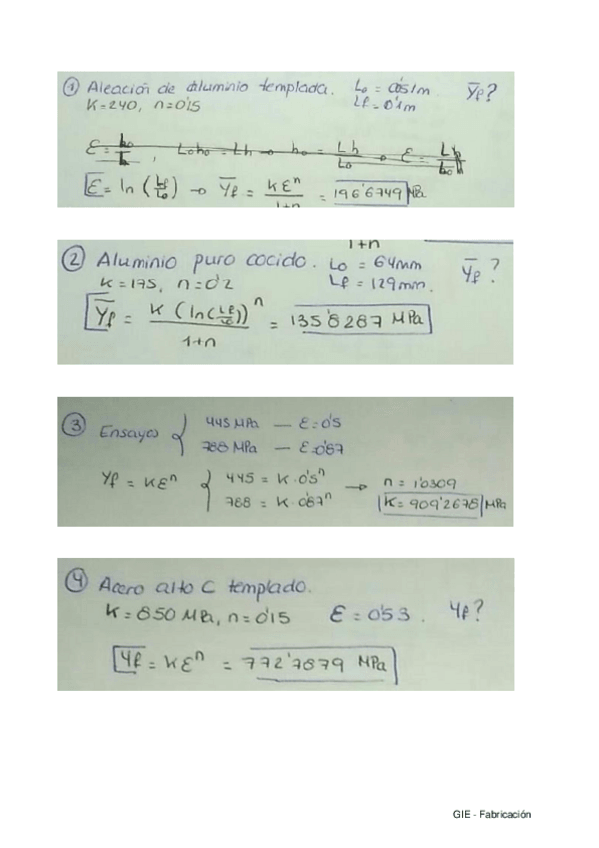 ① Aleación de aluminio templada. Lo = 0'051m Ȳf?
K=240, n=0'15 Lf = 0'1m
Loho = Lh → ho = Lh/Lo → ε =
ε = ln (Lf/Lo) → Ȳf = Kεⁿ/1+n = 196'6749 MPa
1+n
② Aluminio puro cocido. Lo = 64mm Ȳf?
K = 175, n = 0'2 Lf = 129mm.
Ȳf = K (ln(Lf/Lo))ⁿ/1+n = 135'8287 MPa
③ Ensayos { 445 MPa — ε=0'5
788 MPa — ε=0'87
Yf = Kεⁿ { 445 = K·0'5ⁿ → n = 1'0309
788 = K·0'87ⁿ K = 909'2678 MPa
④ Acero alto C templado.
K = 850 MPa, n = 0'15 ε = 0'53. Yf?
Yf = Kεⁿ = 772'7879 MPa
GIE - Fabricación